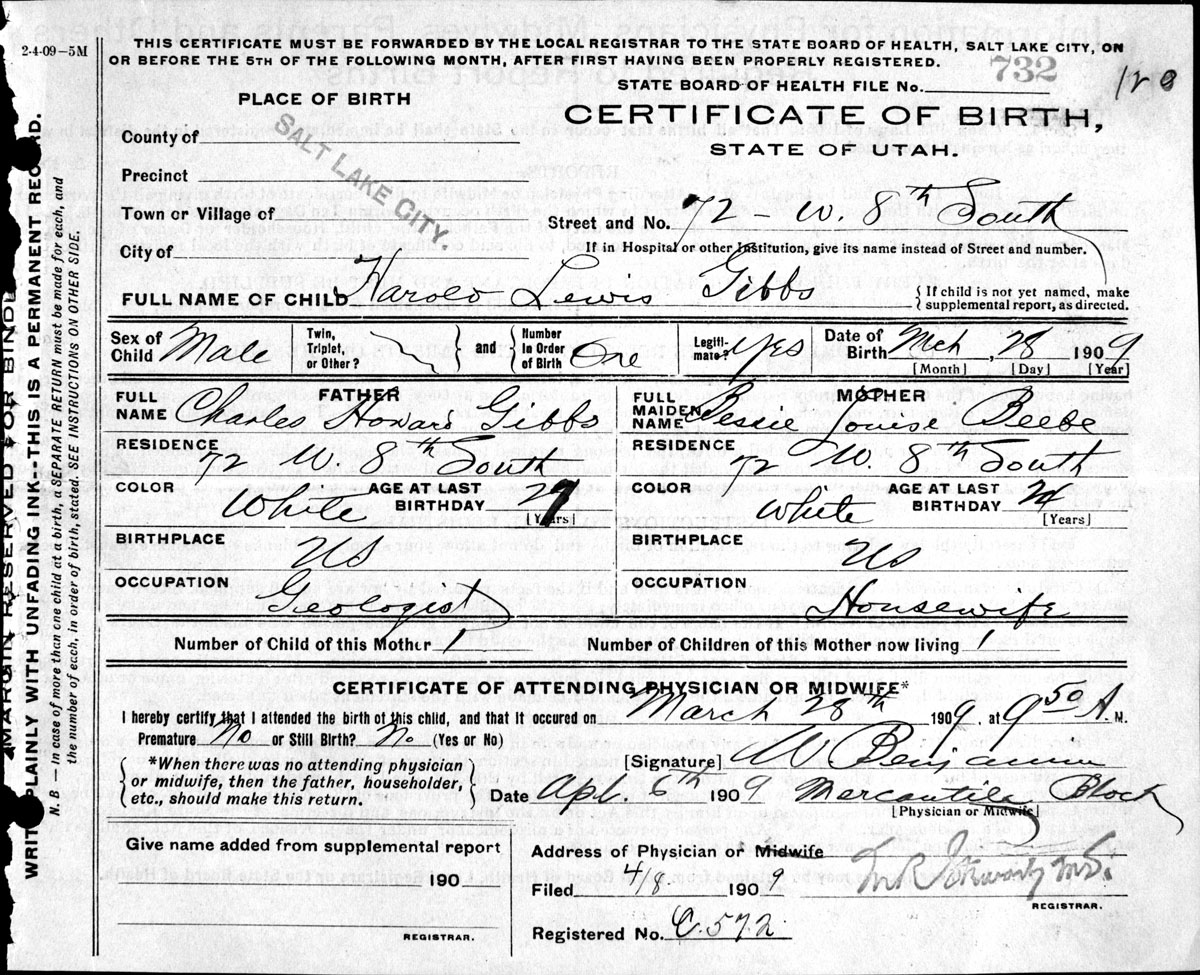 2-4-09-5M
THIS CERTIFICATE MUST BE FORWARDED BY THE LOCAL REGISTRAR TO THE STATE BOARD OF HEALTH, SALT LAKE CITY, ON
OR BEFORE THE 5TH OF THE FOLLOWING MONTH, AFTER FIRST HAVING BEEN PROPERLY REGISTERED.
STATE BOARD OF HEALTH FILE No. 732
PLACE OF BIRTH
CERTIFICATE OF BIRTH,
STATE OF UTAH.
County of
Precinct
Town or Village of
City of
SALT LAKE CITY.
Street and No. 72 - W. 8th South
If in Hospital or other Institution, give its name instead of Street and number.
FULL NAME OF CHILD Harold Lewis Gibbs
If child is not yet named, make
supplemental report, as directed.
Sex of Child Male
Twin, Triplet, or Other?
and
Number In Order of Birth One
Legitimate? yes
Date of Birth Mch. 28 1909
[Month] [Day] [Year]
FATHER
FULL NAME Charles Howard Gibbs
RESIDENCE 72 W. 8th South
COLOR White
AGE AT LAST BIRTHDAY
[Years]
BIRTHPLACE US
OCCUPATION Geologist
MOTHER
FULL MAIDEN NAME Bessie Louise Beebe
RESIDENCE 72 W. 8th South
COLOR White
AGE AT LAST BIRTHDAY 24
[Years]
BIRTHPLACE US
OCCUPATION Housewife
Number of Child of this Mother 1
Number of Children of this Mother now living 1
CERTIFICATE OF ATTENDING PHYSICIAN OR MIDWIFE*
I hereby certify that I attended the birth of this child, and that it occured on March 28th 1909, at 9 50 A. M.
Premature No or Still Birth? No (Yes or No)
*When there was no attending physician
or midwife, then the father, householder,
etc., should make this return.
[Signature] W Benjamin
Date Apl. 6th 1909 Mercantile Block
[Physician or Midwife]
Give name added from supplemental report
190
REGISTRAR.
Address of Physician or Midwife
Filed 4/8 1909
REGISTRAR.
Registered No. C.572
MARGIN RESERVED FOR BINDI
WRITE PLAINLY WITH UNFADING INK--THIS IS A PERMANENT RECORD.
N. B. — In case of more than one child at a birth, a SEPARATE RETURN must be made for each, and
the number of each, in order of birth, stated. SEE INSTRUCTIONS ON OTHER SIDE.